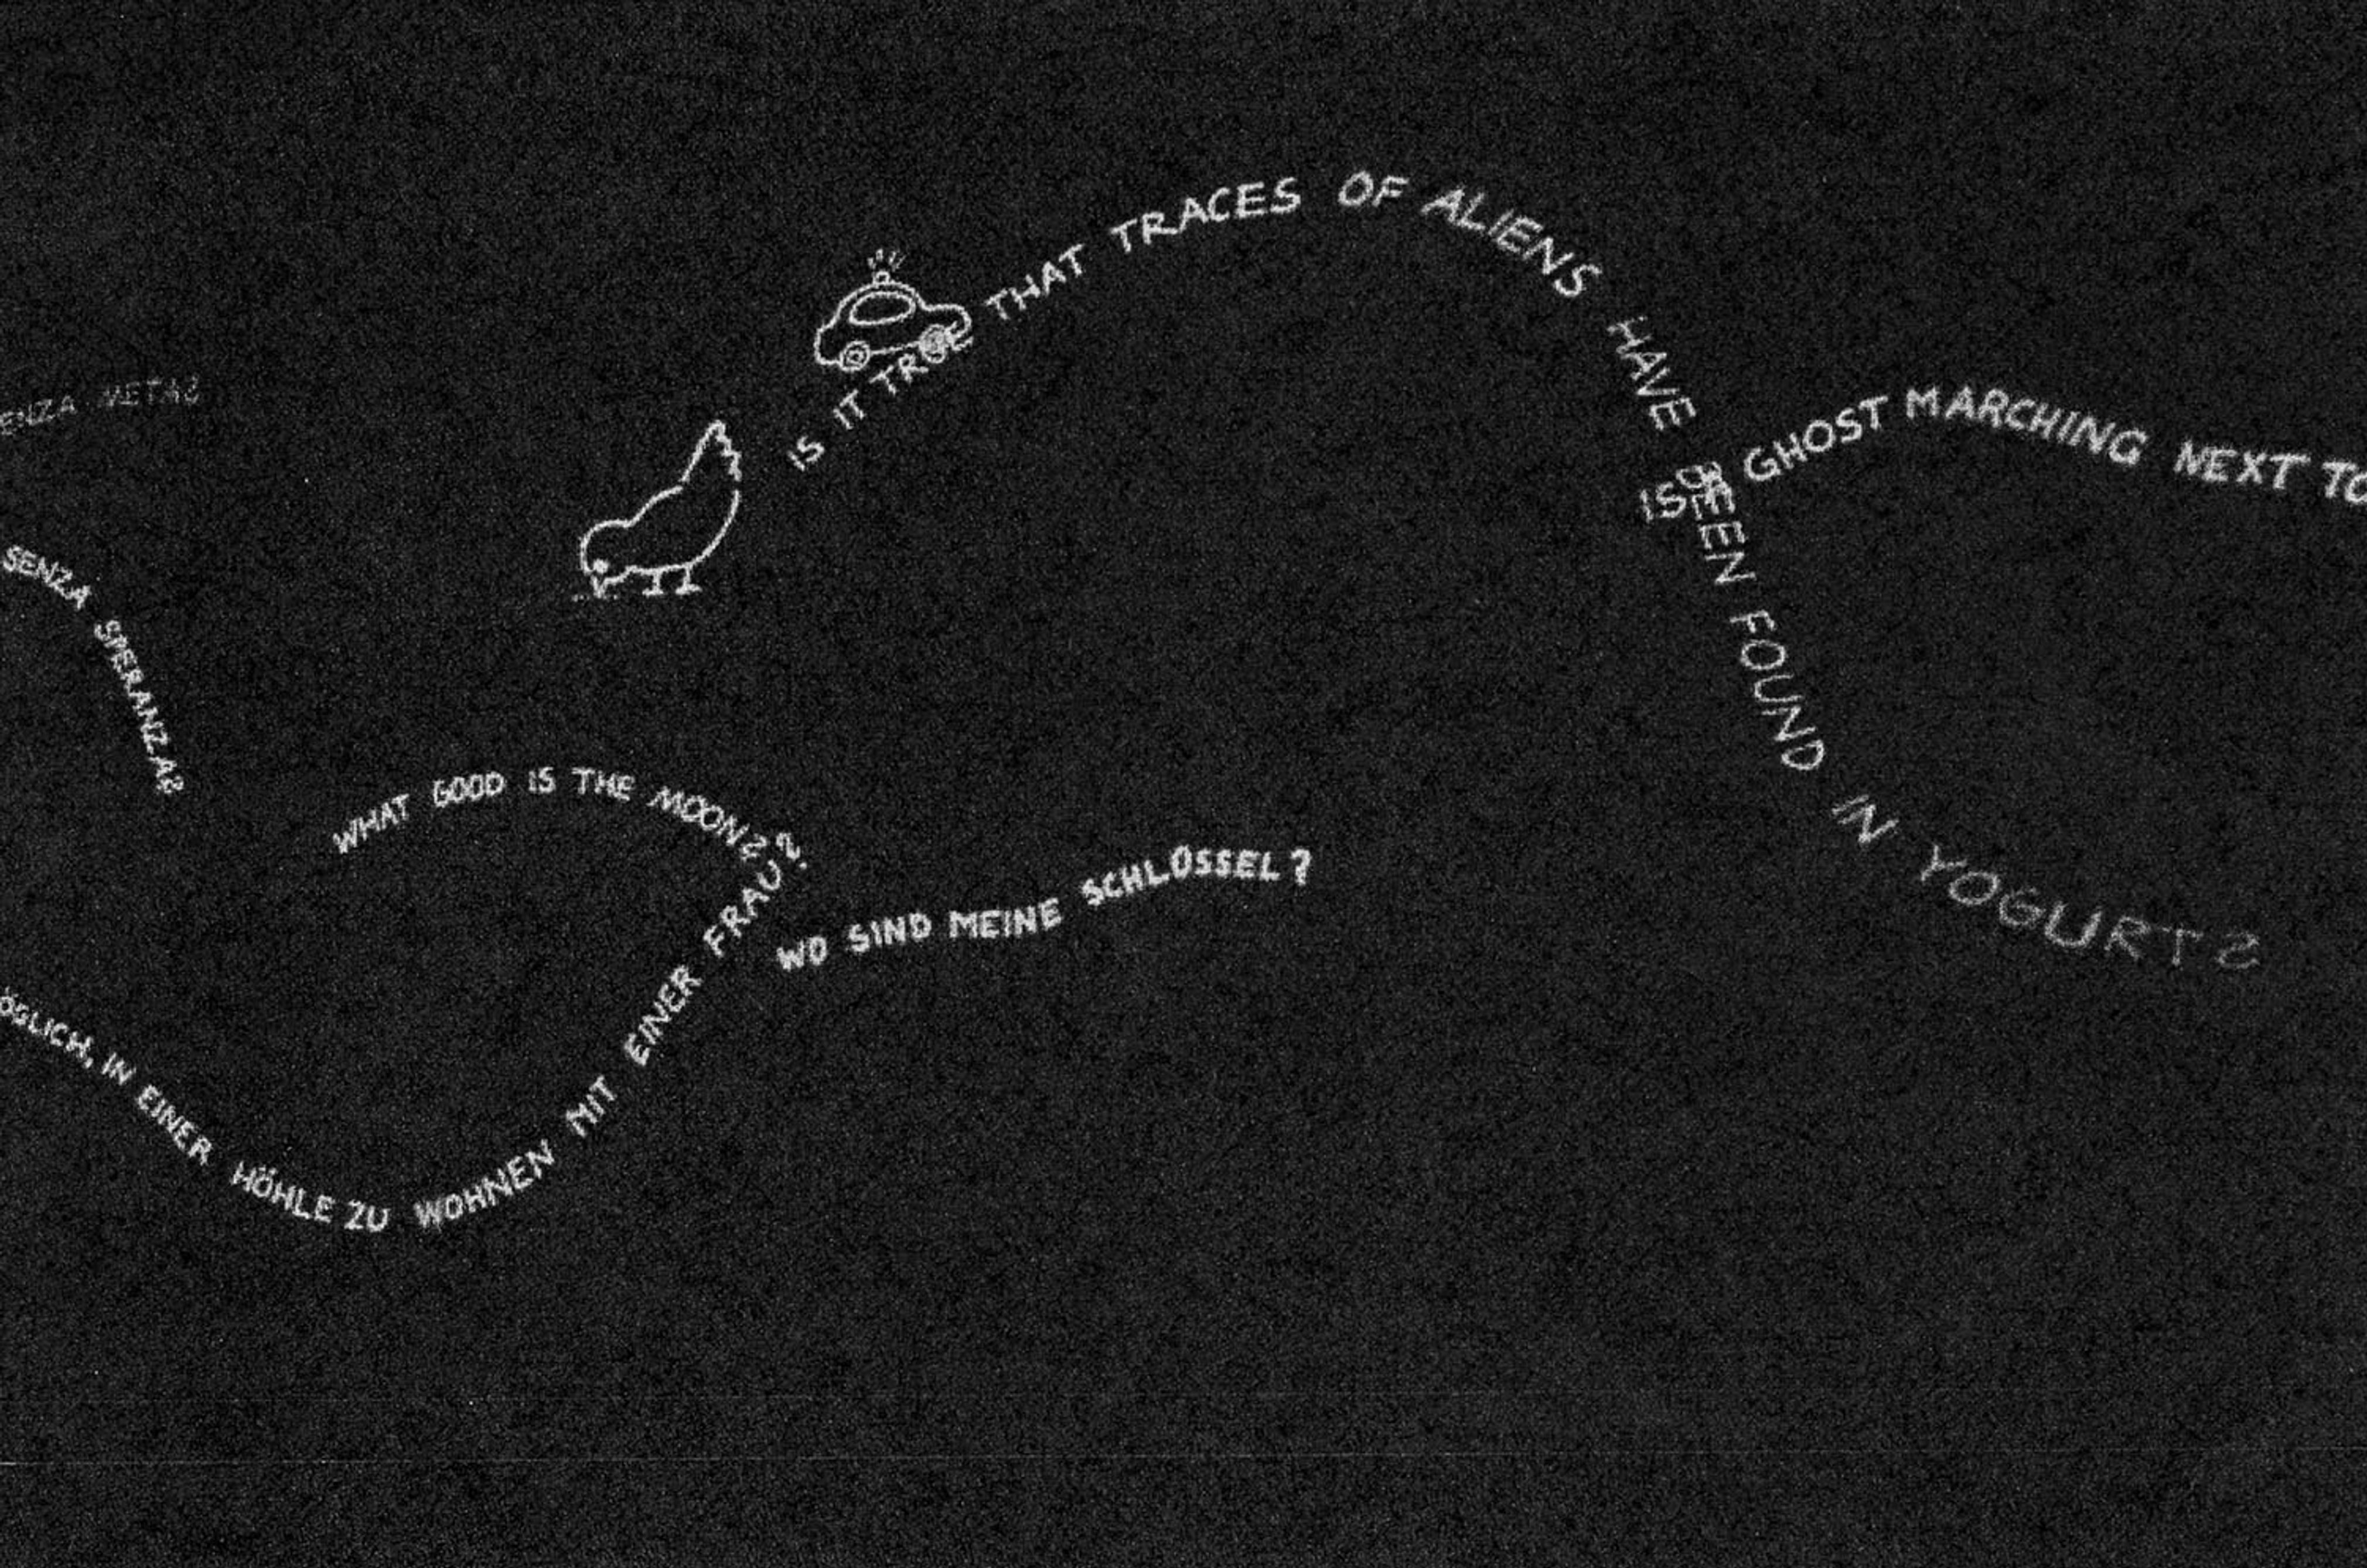 IS IT TRUE THAT TRACES OF ALIENS HAVE BEEN FOUND IN YOGURT?
ENZA META?
IS A GHOST MARCHING NEXT TO
SENZA SPERANZA?
WHAT GOOD IS THE MOON?
WO SIND MEINE SCHLÖSSEL?
ÖGLICH, IN EINER HÖHLE ZU WOHNEN MIT EINER FRAU?